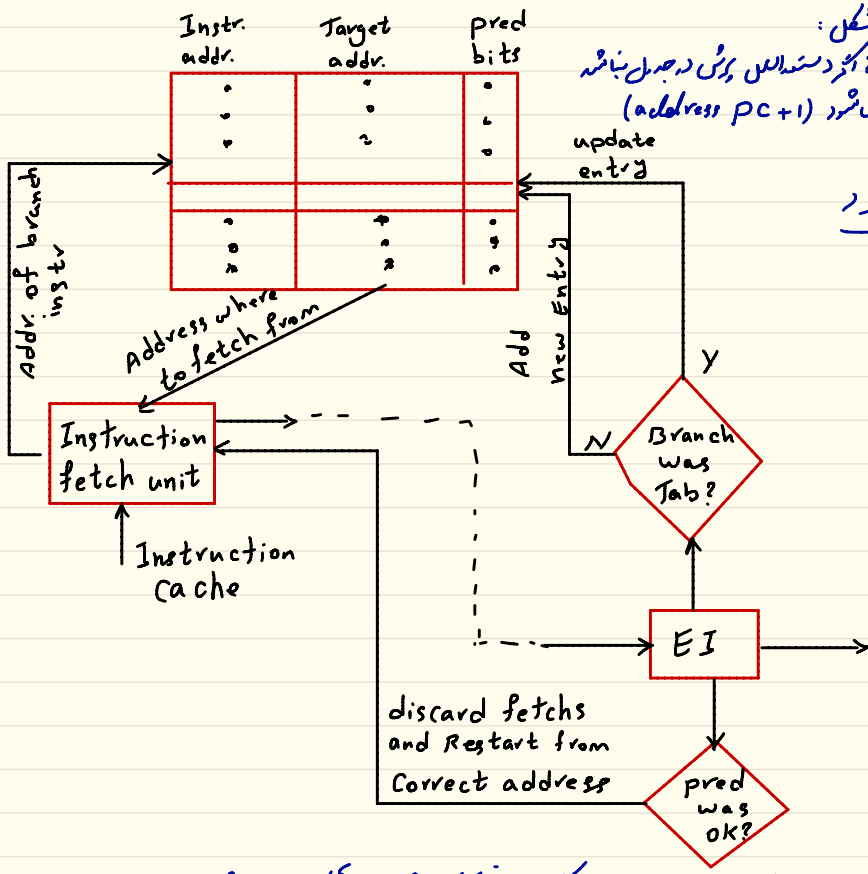 Instr. addr.
Target addr.
pred bits
شکل :
اگر دستورالعمل پرش در جدول نباشد
(address PC+1) شود
update entry
Addr. of branch instr
Address where to fetch from
Add new Entry
Y
N
Branch was Tab?
Instruction fetch unit
Instruction Cache
EI
discard fetchs
and Restart from
Correct address
pred was OK?